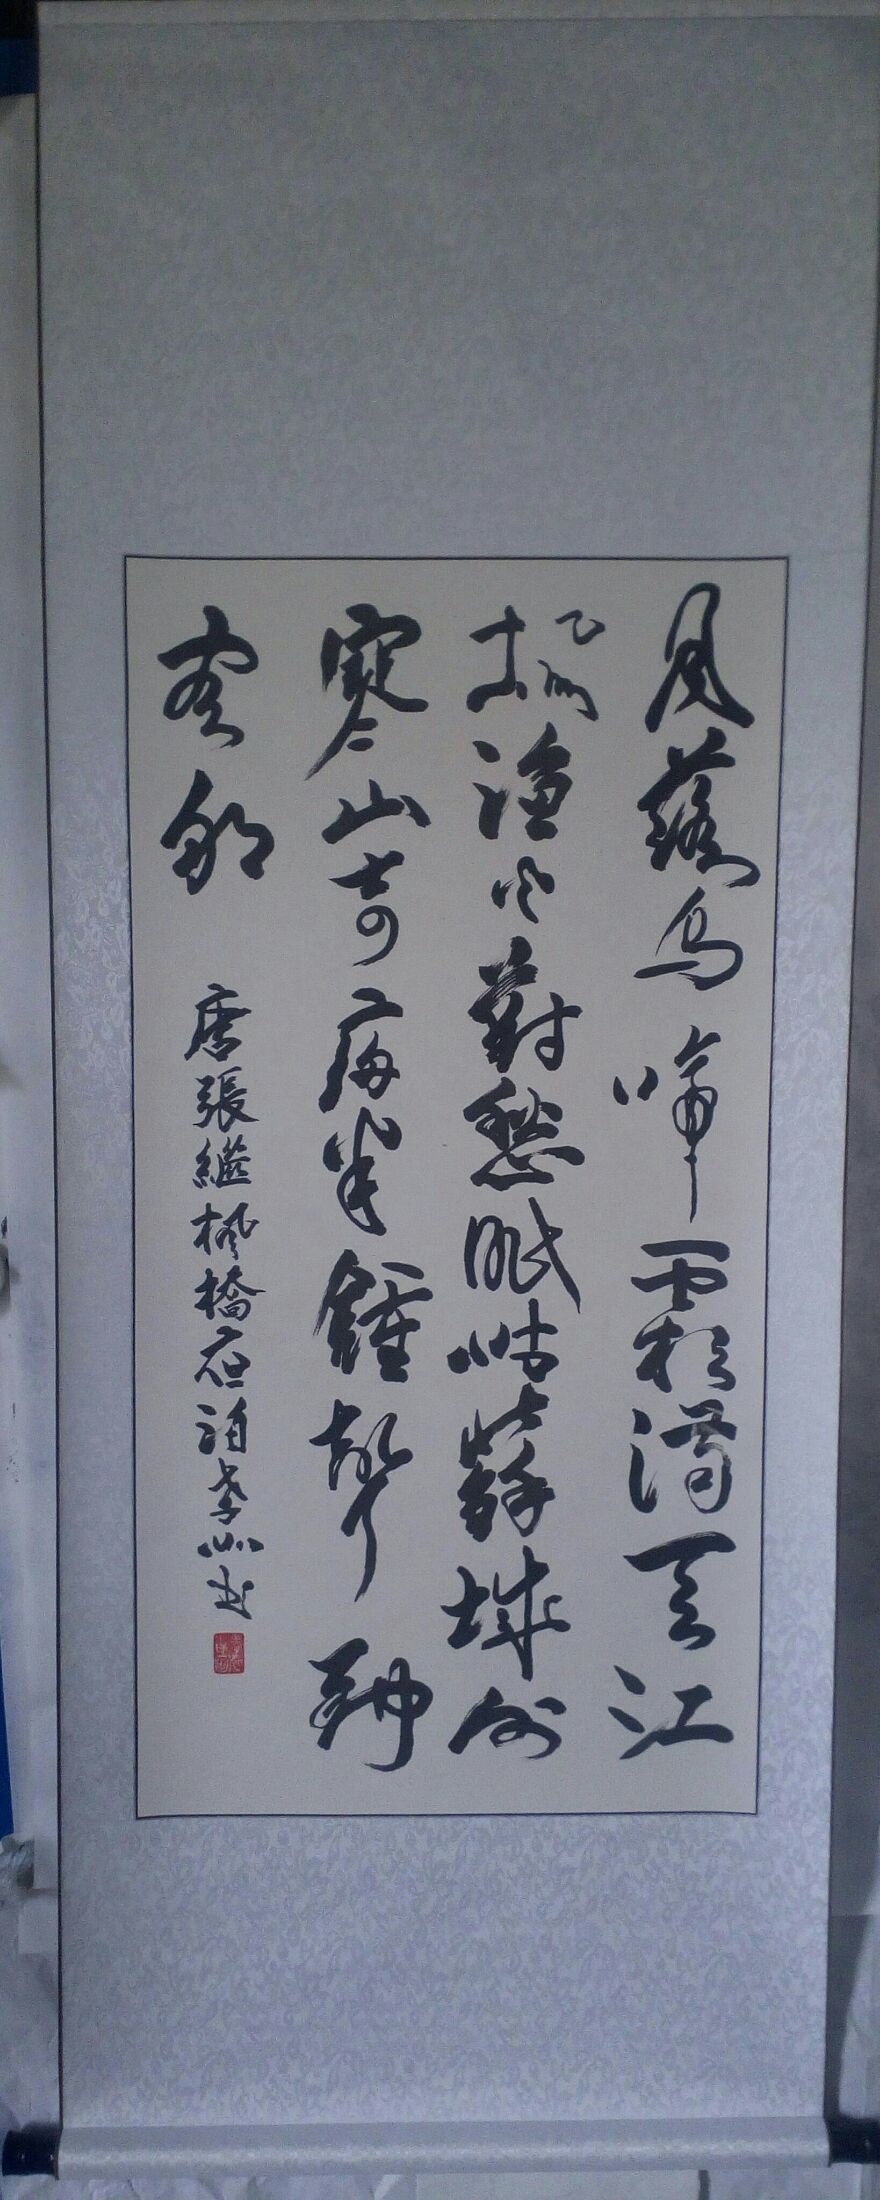 月落烏啼霜滿天江
楓漁火對愁眠姑蘇城外
寒山寺夜半鐘聲到
客船
唐張繼楓橋夜泊書